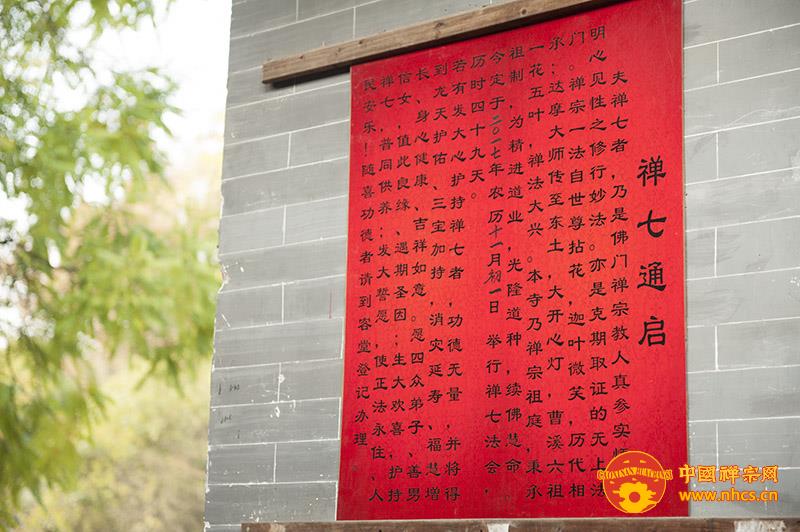 禅七通启
夫禅七者，乃是佛门禅宗教人真参实
明心见性之修行妙法。亦是克期取证的无上法
门。禅宗一法自世尊拈花，迦叶微笑，历代相
承；达摩大师传至东土，大开心灯，曹溪六祖
一花五叶，禅法大兴。本寺乃禅宗祖庭，秉承
祖制，为精进道业，光隆道种，续佛慧命，
今定于二〇一七年农历十一月初一日 举行禅七法会，
历时四十九天。
若有发大心护持禅七者，功德无量，并将得
到龙天护佑、三宝加持，消灾延寿、福慧增
长、身心健康、吉祥如意。愿四众弟子、善男
信女，值此良缘，遇期圣因；生大欢喜，护持
禅七，普同供养；发大誓愿，使正法永住、人
民安乐！随喜功德者请到客堂登记办理
中国禅宗网
www.nhcs.cn